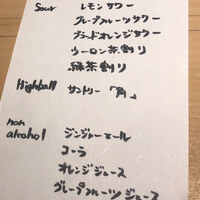 Sour レモンサワー
グレープフルーツサワー
ブラッドオレンジサワー
ウーロン茶割り
緑茶割り
Highball サントリー「角」
non alcohol ジンジャーエール
コーラ
オレンジジュース
グレープフルーツジュース